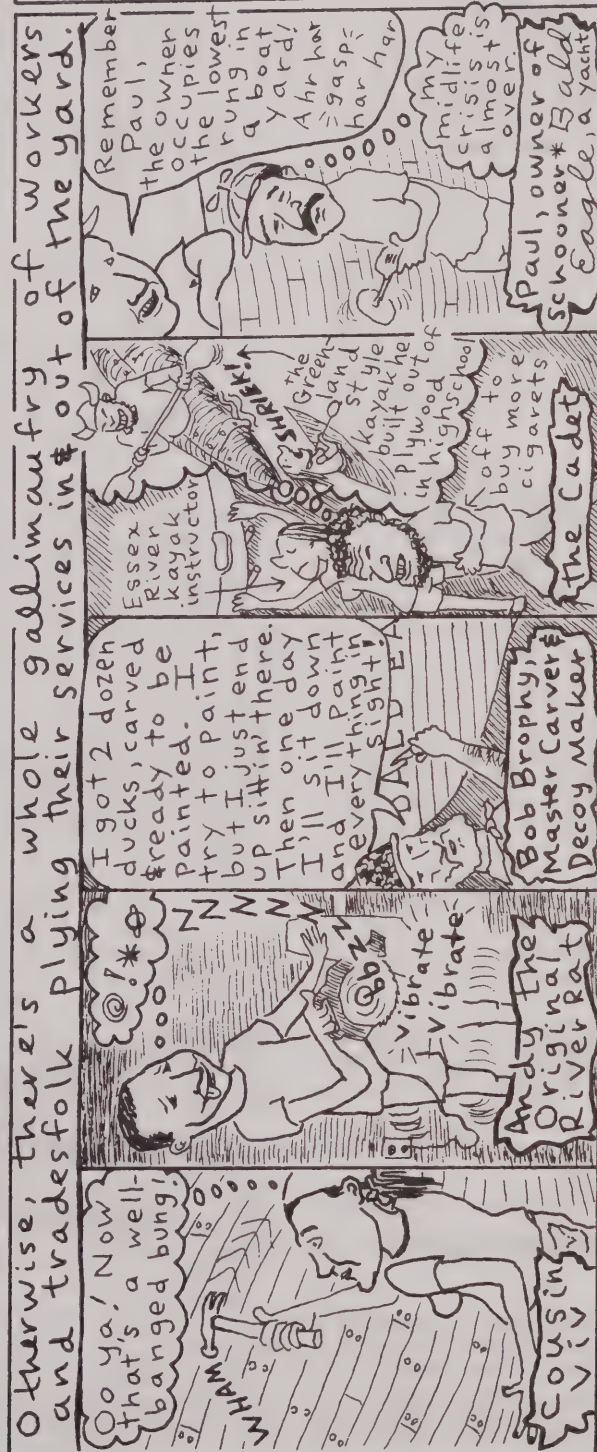 Otherwise, there's a whole gallimaufry of workers
and tradesfolk plying their services in & out of the yard.
Oo ya! Now
that's a well-
banged bung!
WHAM
Cousin
Viv
@!*
N
N
N
N
N
N
bbzzz
vibrate
vibrate
Andy the
Original
River Rat
I got 2 dozen
ducks, carved
& ready to be
painted. I
try to paint,
but I just end
up sittin' there.
Then one day
I'll sit down
and I'll paint
everything in
sight!
BALD EA
Bob Brophy,
Master Carver &
Decoy Maker
Essex
River
kayak
instructor
SHRIEK!
the
Green-
land
style
kayak he
built out of
plywood
in highschool
off to
buy more
cigarets
the Cadet
Remember
Paul,
the owner
occupies
the lowest
rung in
a boat
yard!
Ahr har
=gasp=
har har
my
midlife
crisis is
almost
over.
Paul, owner of
schooner* Bald
Eagle, a yacht